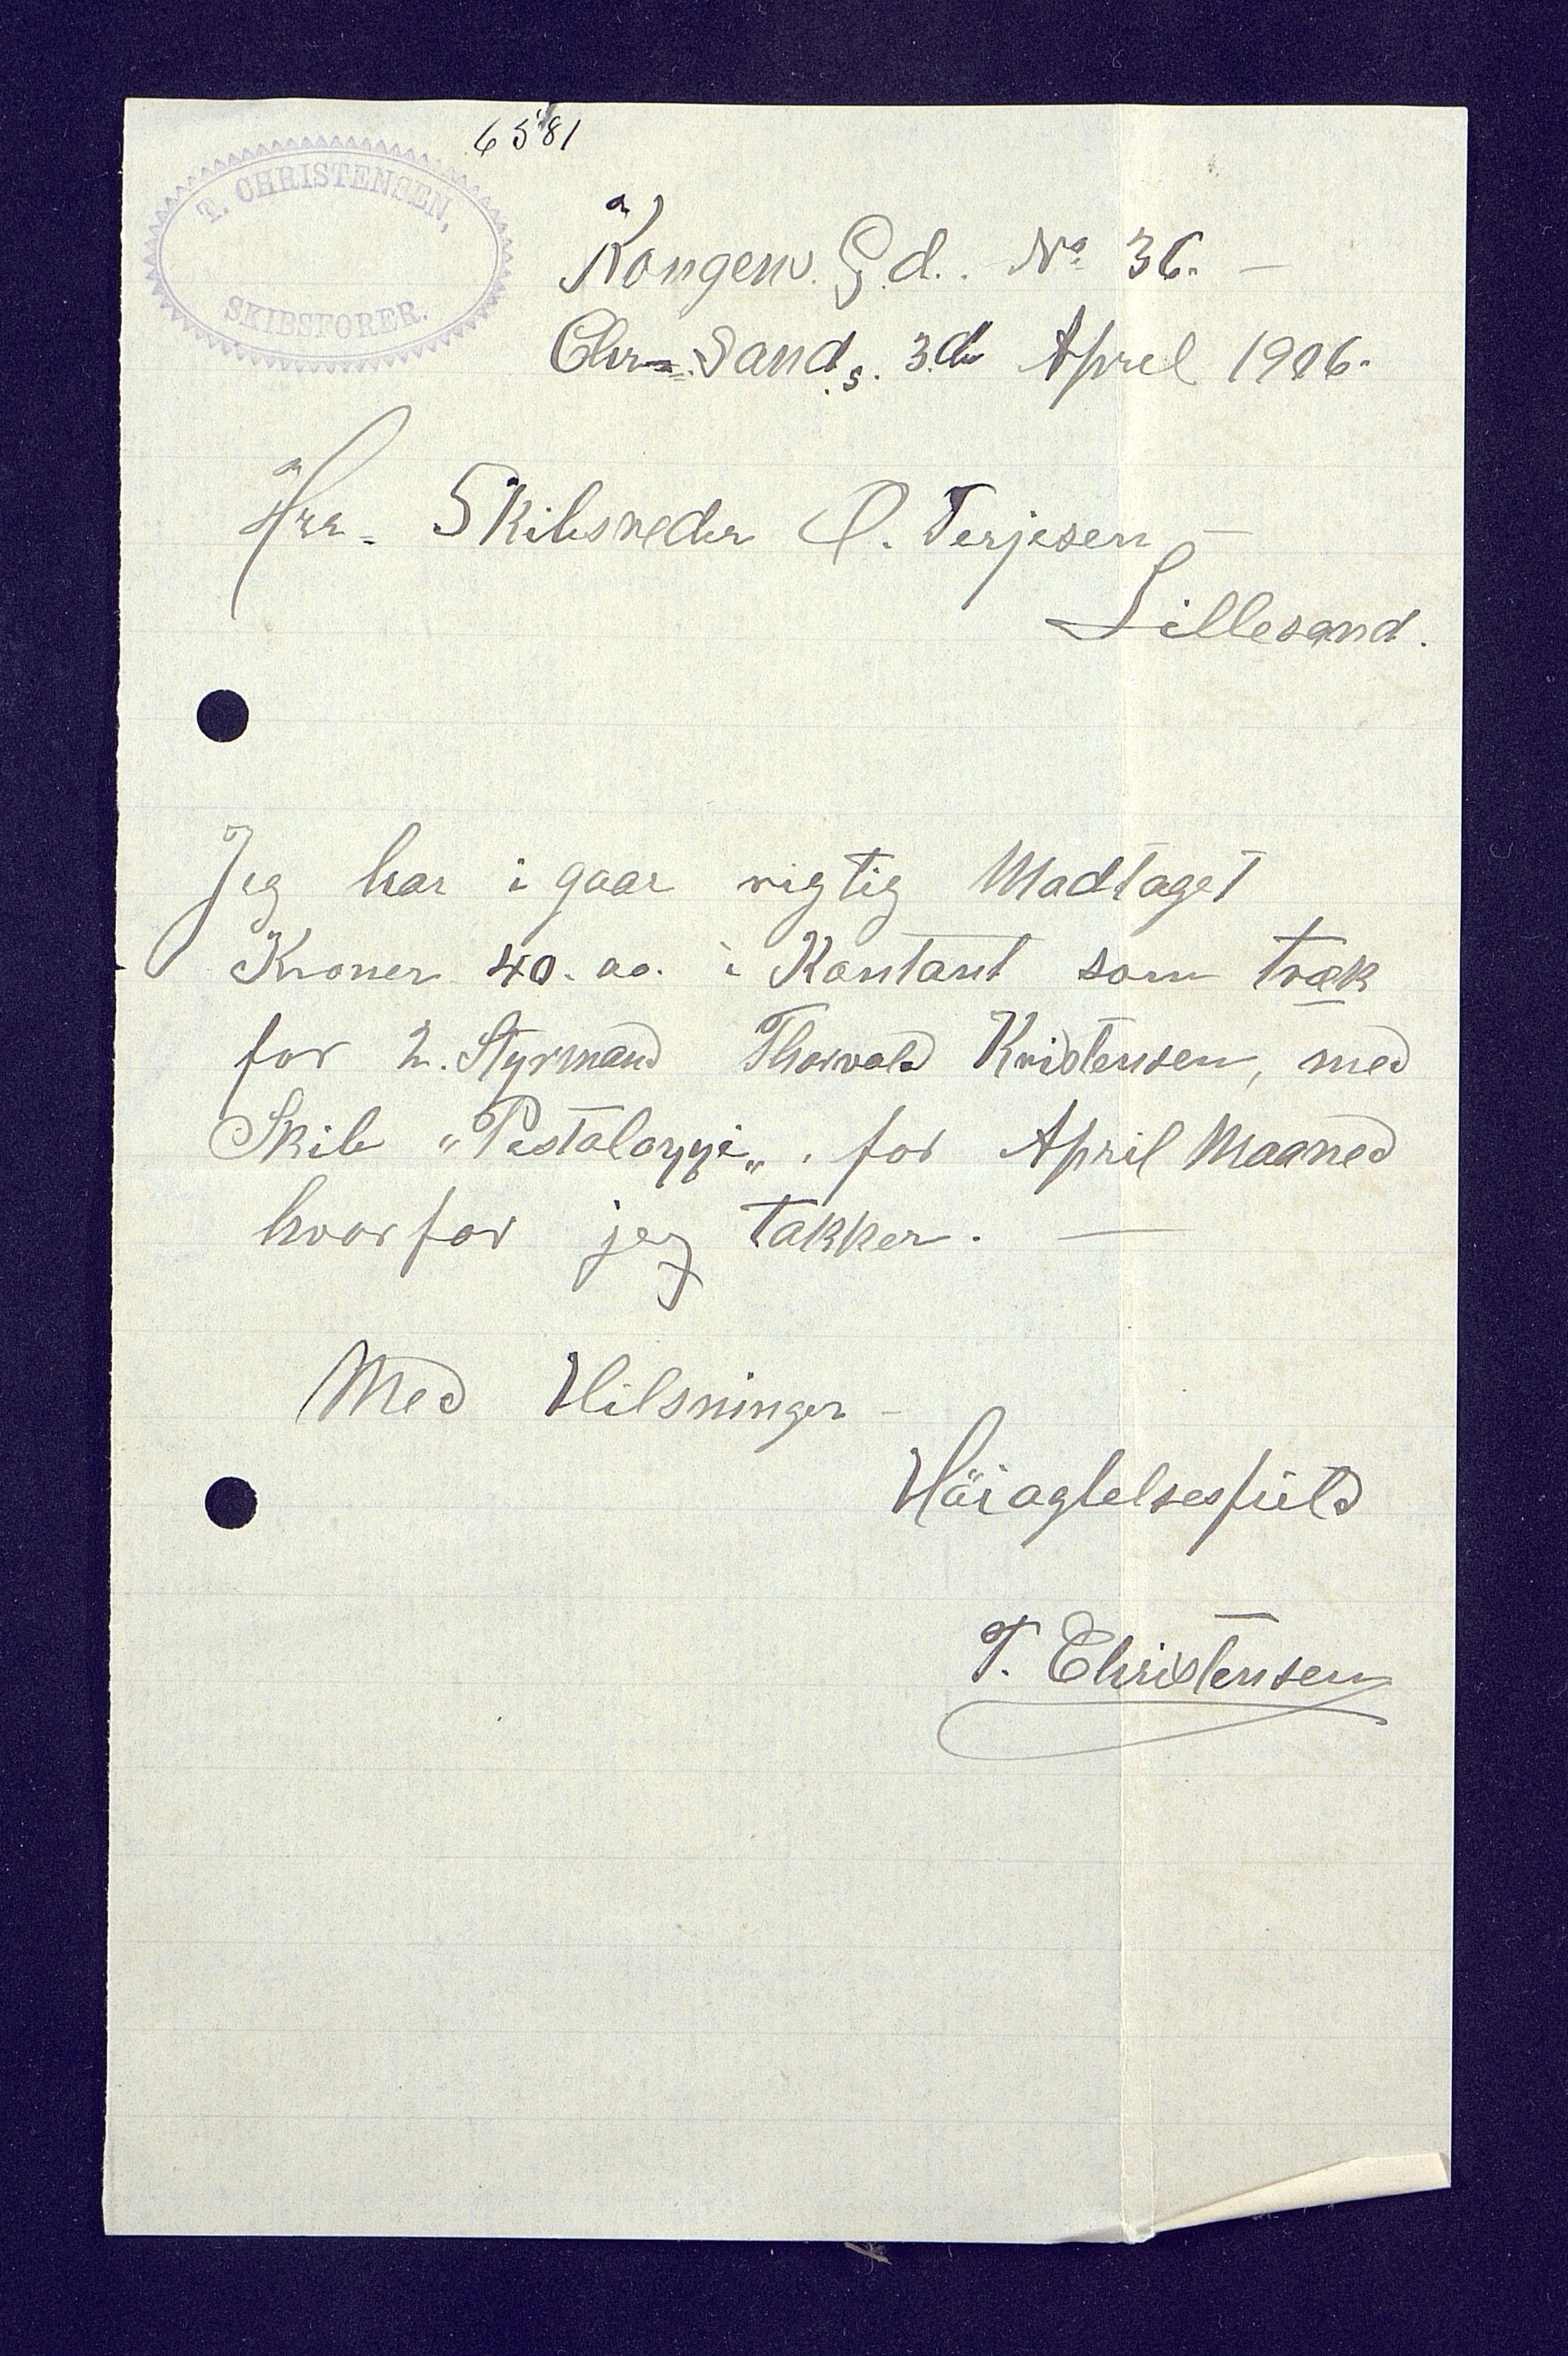 6581
T. CHRISTENSEN,
SKIBSFØRER.
Kongens. G.d.. No 36. —
Chr=Sand.s. 3.die April 1906.
Hrr. Skibsreder O. Terjesen —
Lillesand.
Jeg har i gaar rigtig Modtaget
Kroner 40. oo. i Kontant som træk
for 2. Styrmand Thorvald Kristensen, med
Skib "Pestalozzi„. for April Maaned
hvorfor jeg takker. —
Med Hilsninger —
Höiagtelsesfuld
T. Christensen